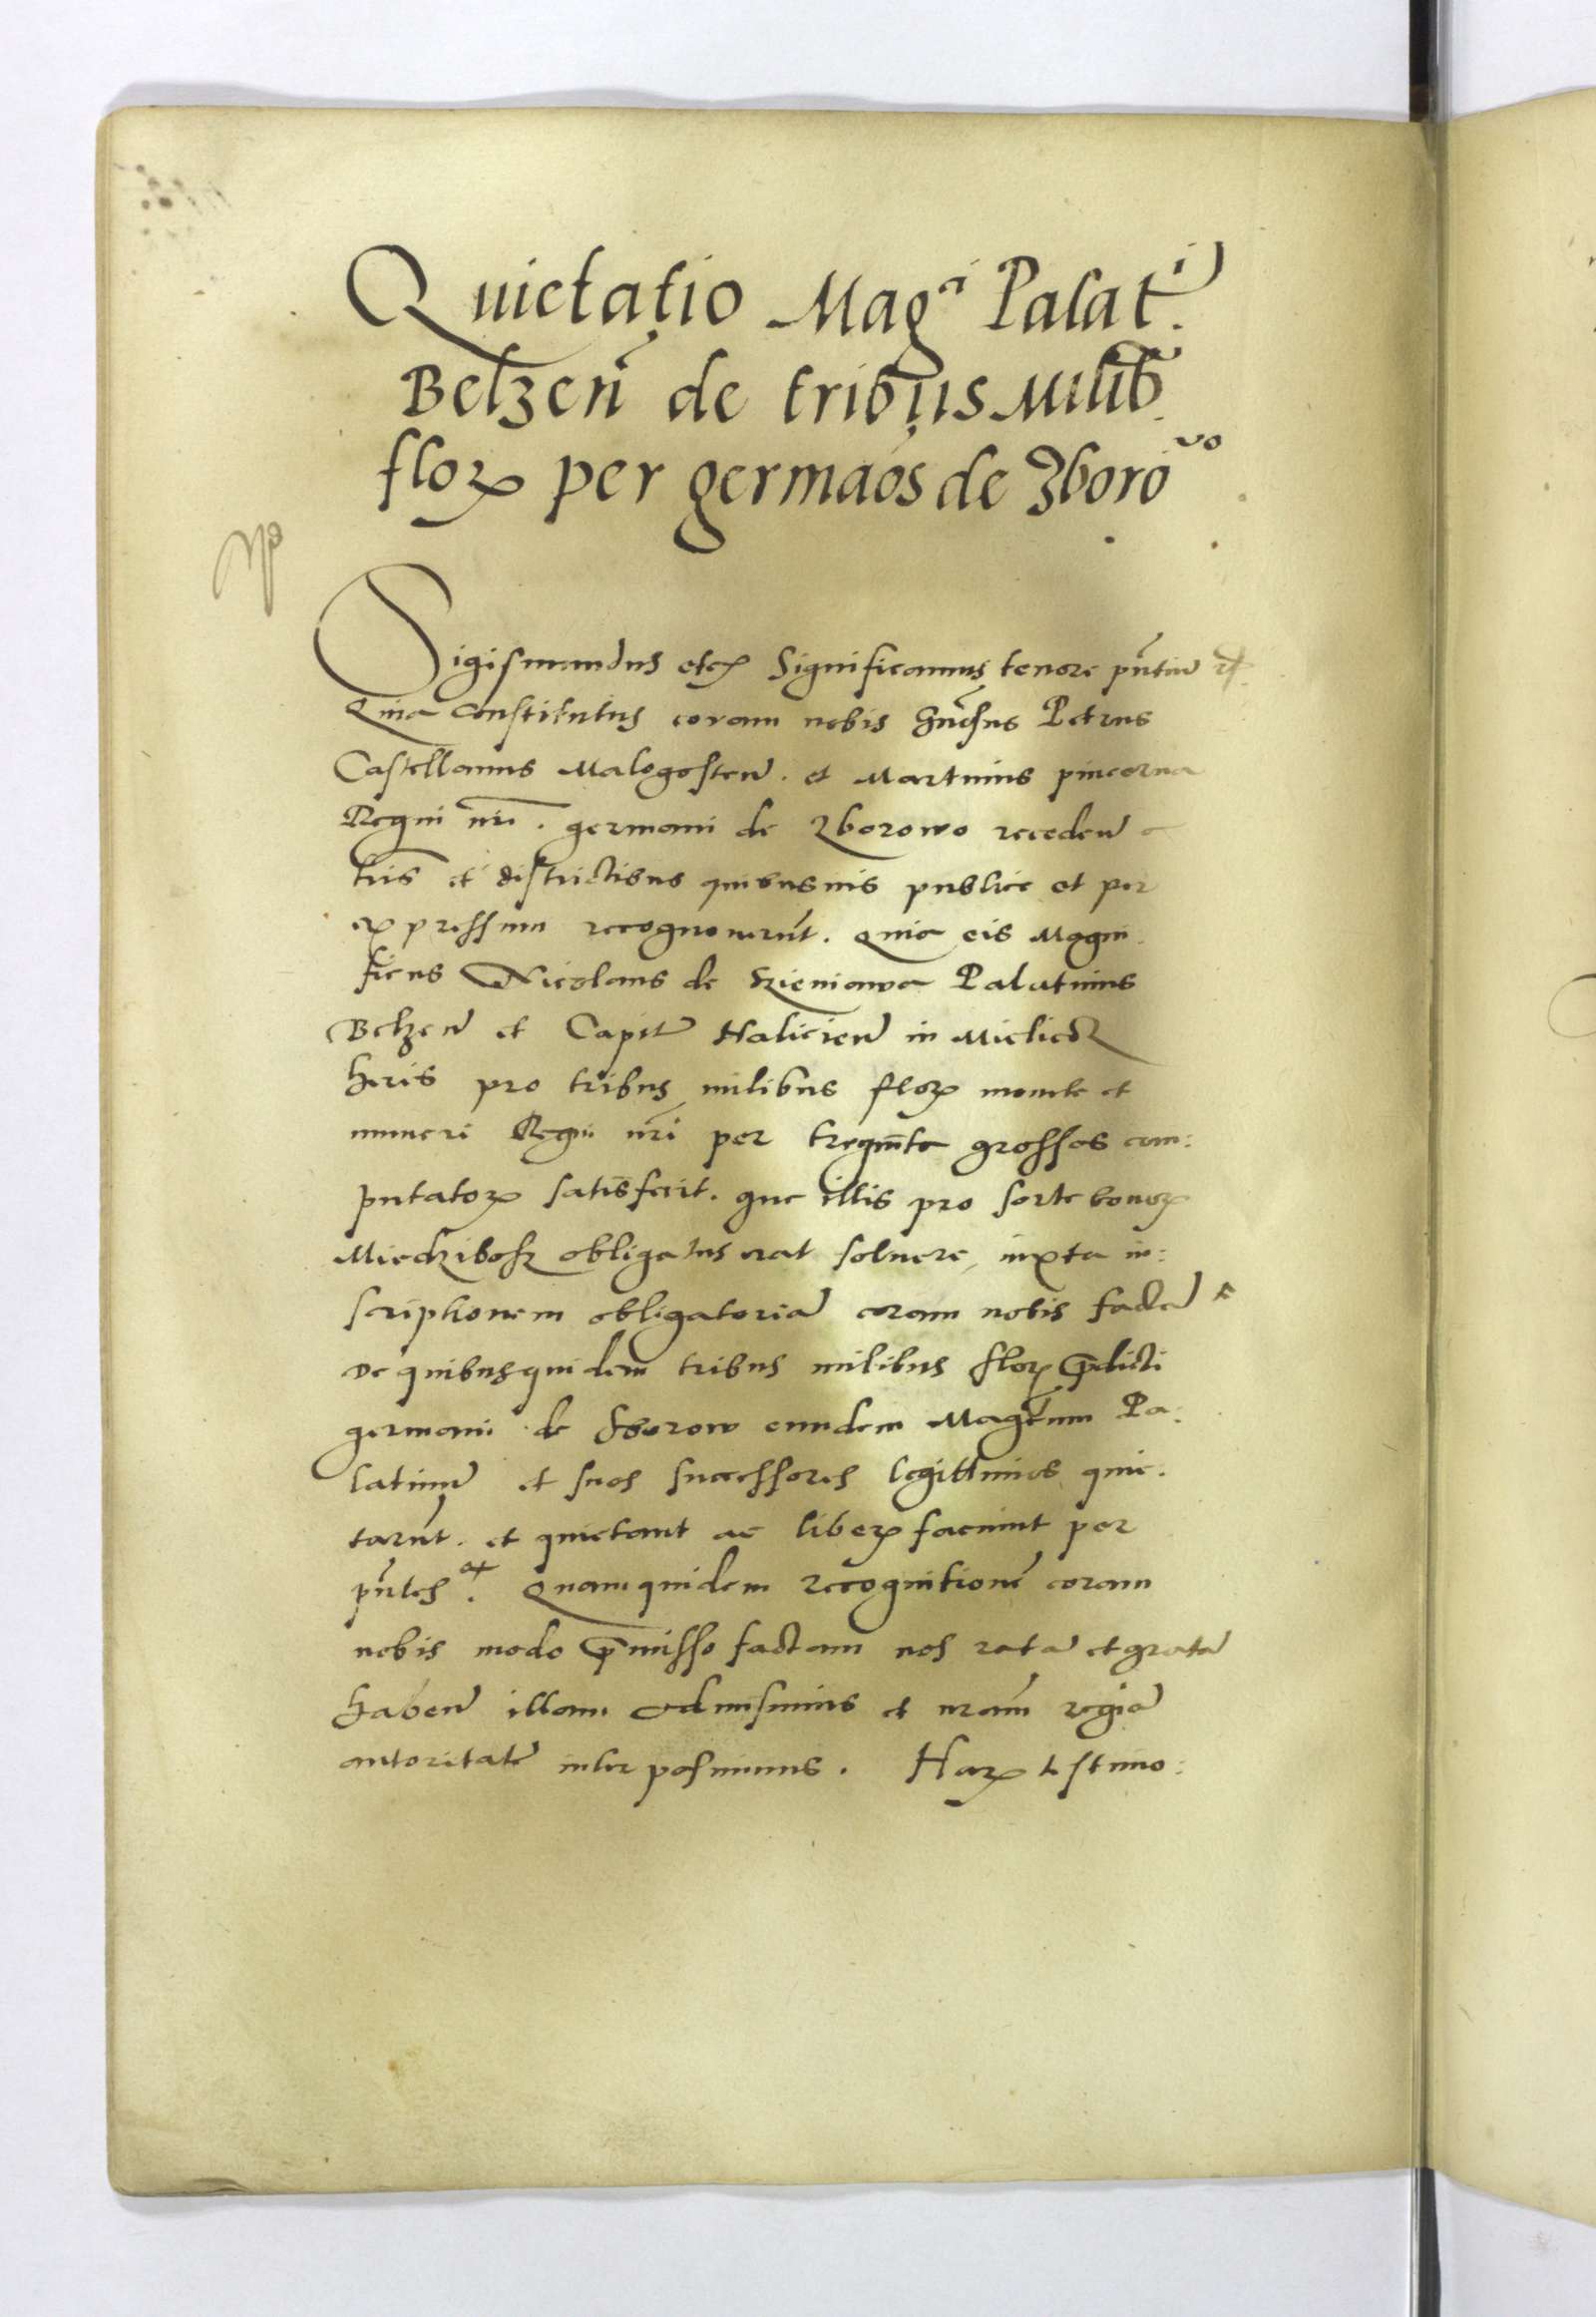 Quietatio Mag^ci Palat^i.
Belzen̄ de tribus milib̄
floꝝ per germāos de Zboro^vo
Sigismundus etcꝭ Significamus tenore pn̄tium
Quia constitutus coram nobis Gn̄osus Petrus
Castellanus Malogosten̄. et Martinus pincerna
Regni nr̄i. germani de Zborowo receden̄ a
tris et districtibus quibusuis publice et per
expressum recognouerūt. Quia eis Magni
ficus Nicolaus de Szieniawa Palatinus
Belzen̄ et Capit̄ Halicien̄ in
pro tribus milibus floꝝ monete et
numeri Regni nr̄i per trigīnta grossos com:
putatoꝝ satisfecit. que illis pro sorte bonoꝝ
Miedziboſz obligatus erat soluere, iuxta in:
scriptionem obligatoriā coram nobis factā
De quibusquidem tribus milibus floꝝ p̄dicti
germani de Sborow eundem Mag^cum Pa:
latinū et suos successores legittimos quie.
tarūt. et quietant ac liberꝝ faciunt per
pn̄tes. Quamquidem recognitionē coram
nobis modo p̄misso factam nos ratā et gratā
haben̄ illam admisimus et nr̄am regiā
autoritatē interposuimus. Haꝝ testimo: